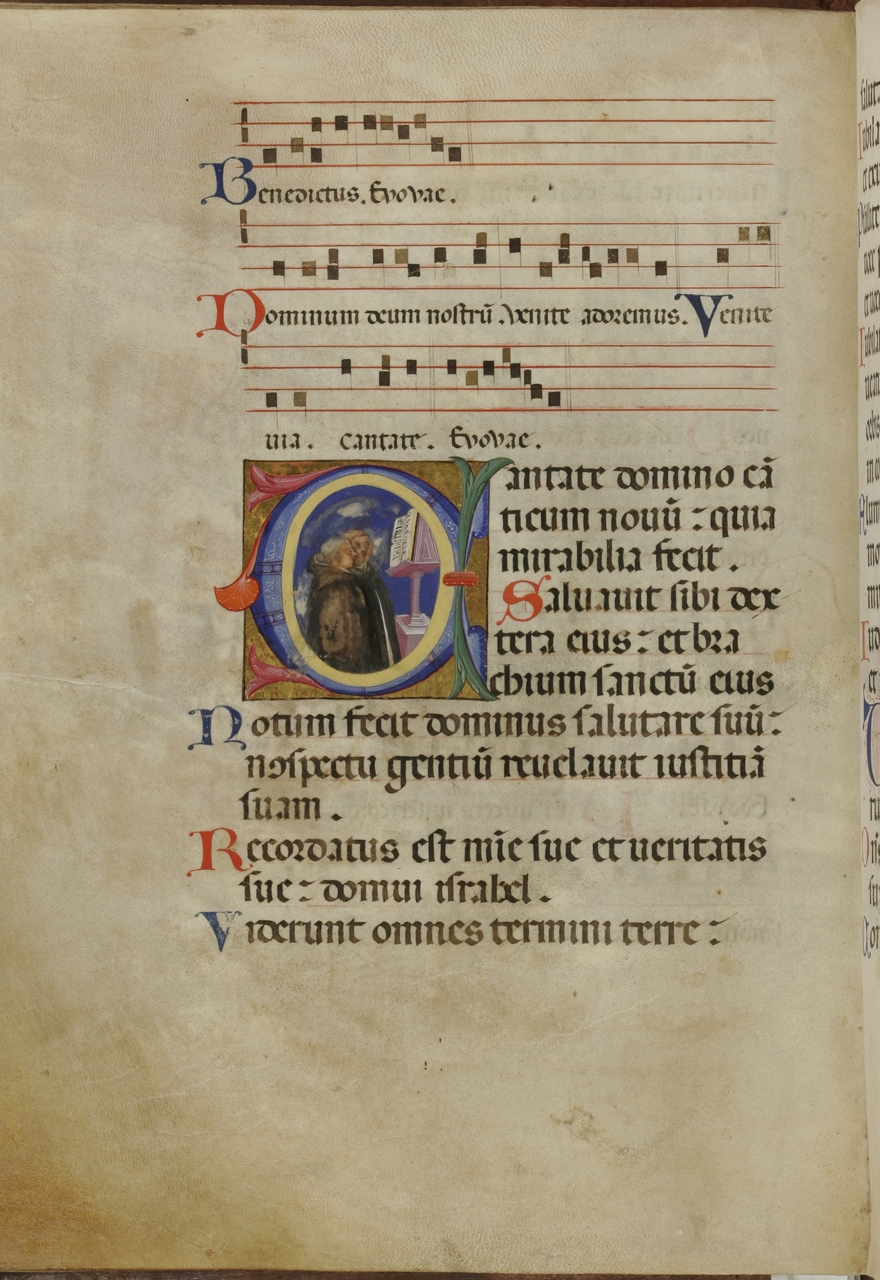 Benedictus. Evovae.
Dominum deum nostrū. Venite adoremus. Venite
uia. Cantate. Evovae.
Cantate domino cā
ticum nouū : quia
mirabilia fecit.
Saluauit sibi dex
tera eius : et bra
chium sanctū eius
Notum fecit dominus salutare suū :
nospectu gentiū reuelauit iustitiā
suam.
Recordatus est mīe sue et ueritatis
sue : domui israhel.
Viderunt omnes termini terre :